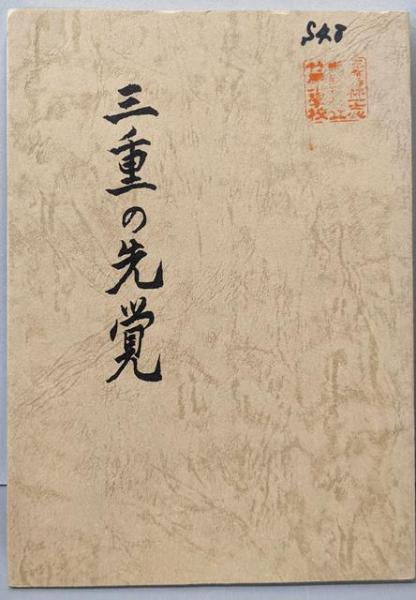 三重の先覚
S48